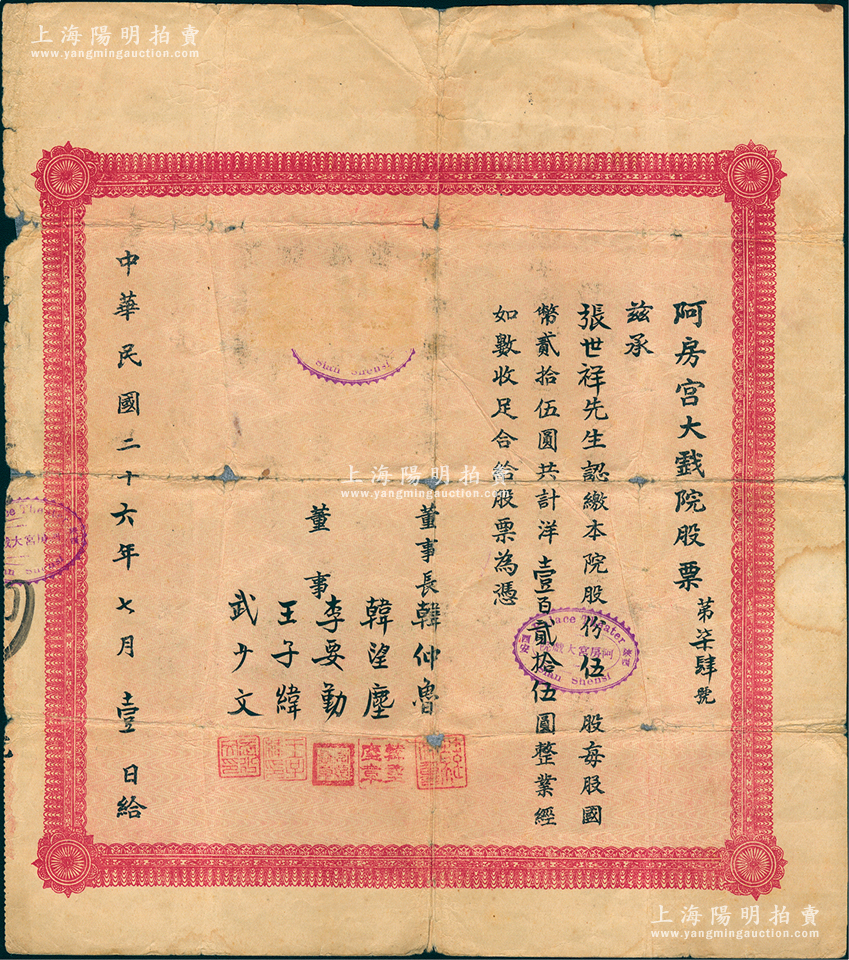 上海陽明拍賣
www.yangmingauction.com
阿房宮大戲院股票 第柒肆號
茲承
張世祥先生認繳本院股份伍股每股國
幣貳拾伍圓共計洋壹百貳拾伍圓整業經
如數收足合給股票為憑
董事長 韓仲魯
董事 韓望塵
李要勤
王子緯
武少文
中華民國二十六年七月壹日給
Sian Shensi
Palace Theater
陝西
阿房宮大戲院
西安
Sian Shensi
上海陽明拍賣
www.yangmingauction.com
上海陽明拍賣
www.yangmingauction.com